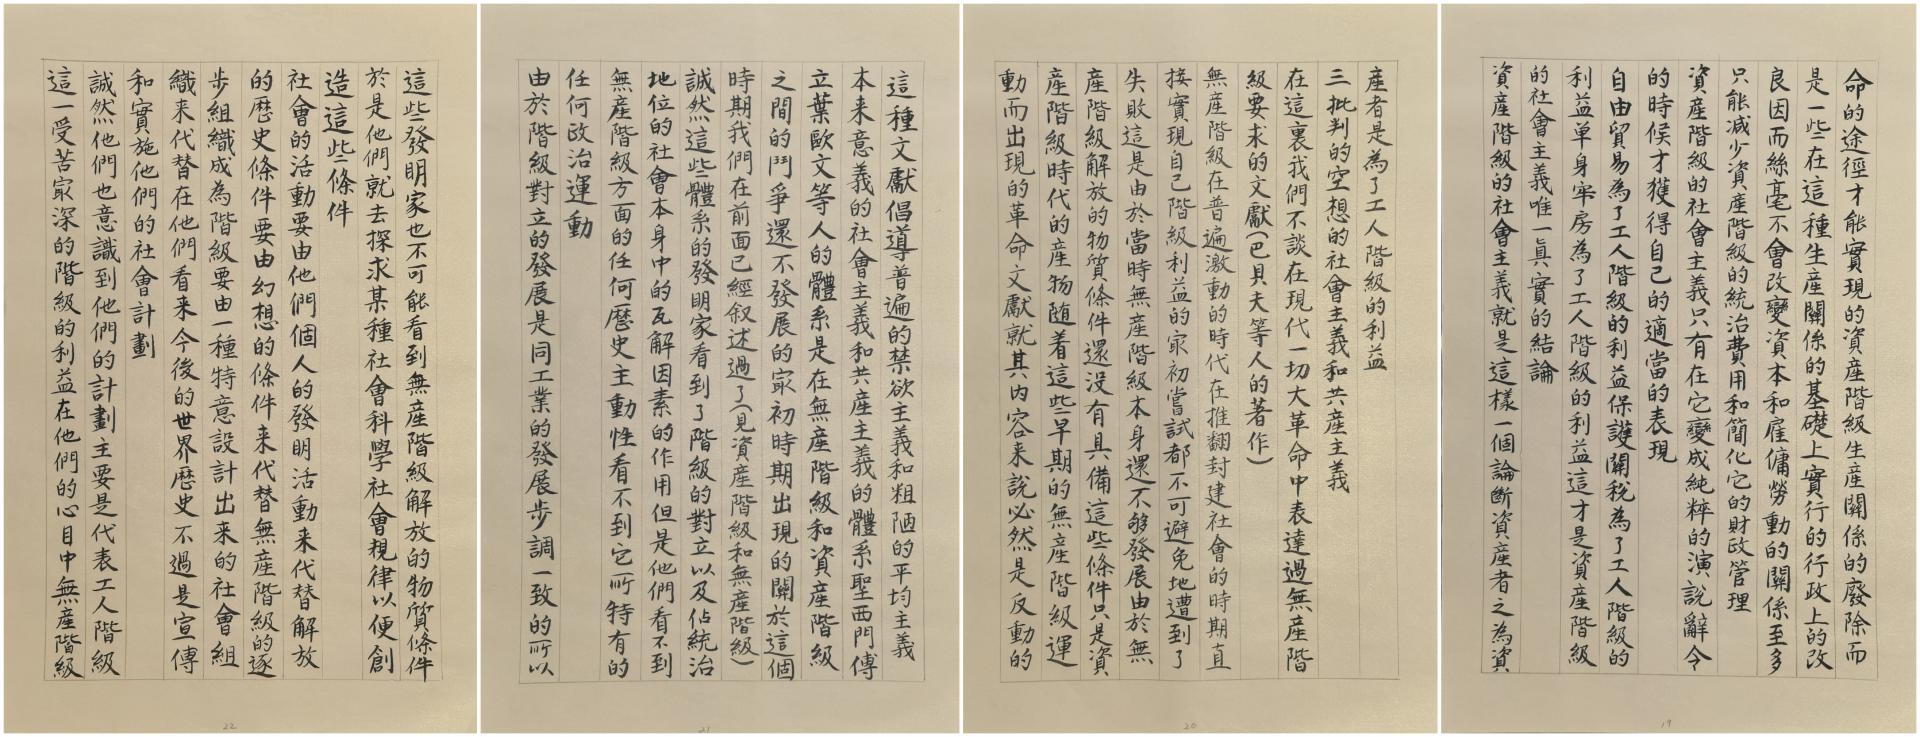 命的途徑才能實現的資產階級生産關係的廢除而
是一些在這種生産關係的基礎上實行的行政上的改
良因而絲毫不會改變資本和雇傭勞動的關係至多
只能減少資産階級的統治費用和簡化它的財政管理
資産階級的社會主義只有在它變成純粹的演說辭令
的時候才獲得自己的適當的表現
自由貿易為了工人階級的利益保護關稅為了工人階級的
利益單身牢房為了工人階級的利益這才是資産階級
的社會主義唯一真實的結論
資産階級的社會主義就是這樣一個論斷資産者之為資
19
産者是為了工人階級的利益
三批判的空想的社會主義和共産主義
在這裏我們不談在現代一切大革命中表達過無産階
級要求的文獻(巴貝夫等人的著作)
無産階級在普遍激動的時代在推翻封建社會的時期直
接實現自己階級利益的最初嘗試都不可避免地遭到了
失敗這是由於當時無産階級本身還不够發展由於無
産階級解放的物質條件還没有具備這些條件只是資
産階級時代的産物隨着這些早期的無産階級運
動而出現的革命文獻就其內容来說必然是反動的
20
這種文獻倡導普遍的禁欲主義和粗陋的平均主義
本来意義的社會主義和共産主義的體系聖西門傅
立葉歐文等人的體系是在無産階級和資産階級
之間的鬥爭還不發展的最初時期出現的關於這個
時期我們在前面已經叙述過了(見資産階級和無産階級)
誠然這些體系的發明家看到了階級的對立以及佔統治
地位的社會本身中的瓦解因素的作用但是他們看不到
無産階級方面的任何歷史主動性看不到它所特有的
任何政治運動
由於階級對立的發展是同工業的發展步調一致的所以
21
這些發明家也不可能看到無産階級解放的物質條件
於是他們就去探求某種社會科學社會規律以便創
造這些條件
社會的活動要由他們個人的發明活動来代替解放
的歷史條件要由幻想的條件来代替無産階級的逐
步組織成為階級要由一種特意設計出来的社會組
織来代替在他們看来今後的世界歷史不過是宣傳
和實施他們的社會計劃
誠然他們也意識到他們的計劃主要是代表工人階級
這一受苦最深的階級的利益在他們的心目中無産階級
22